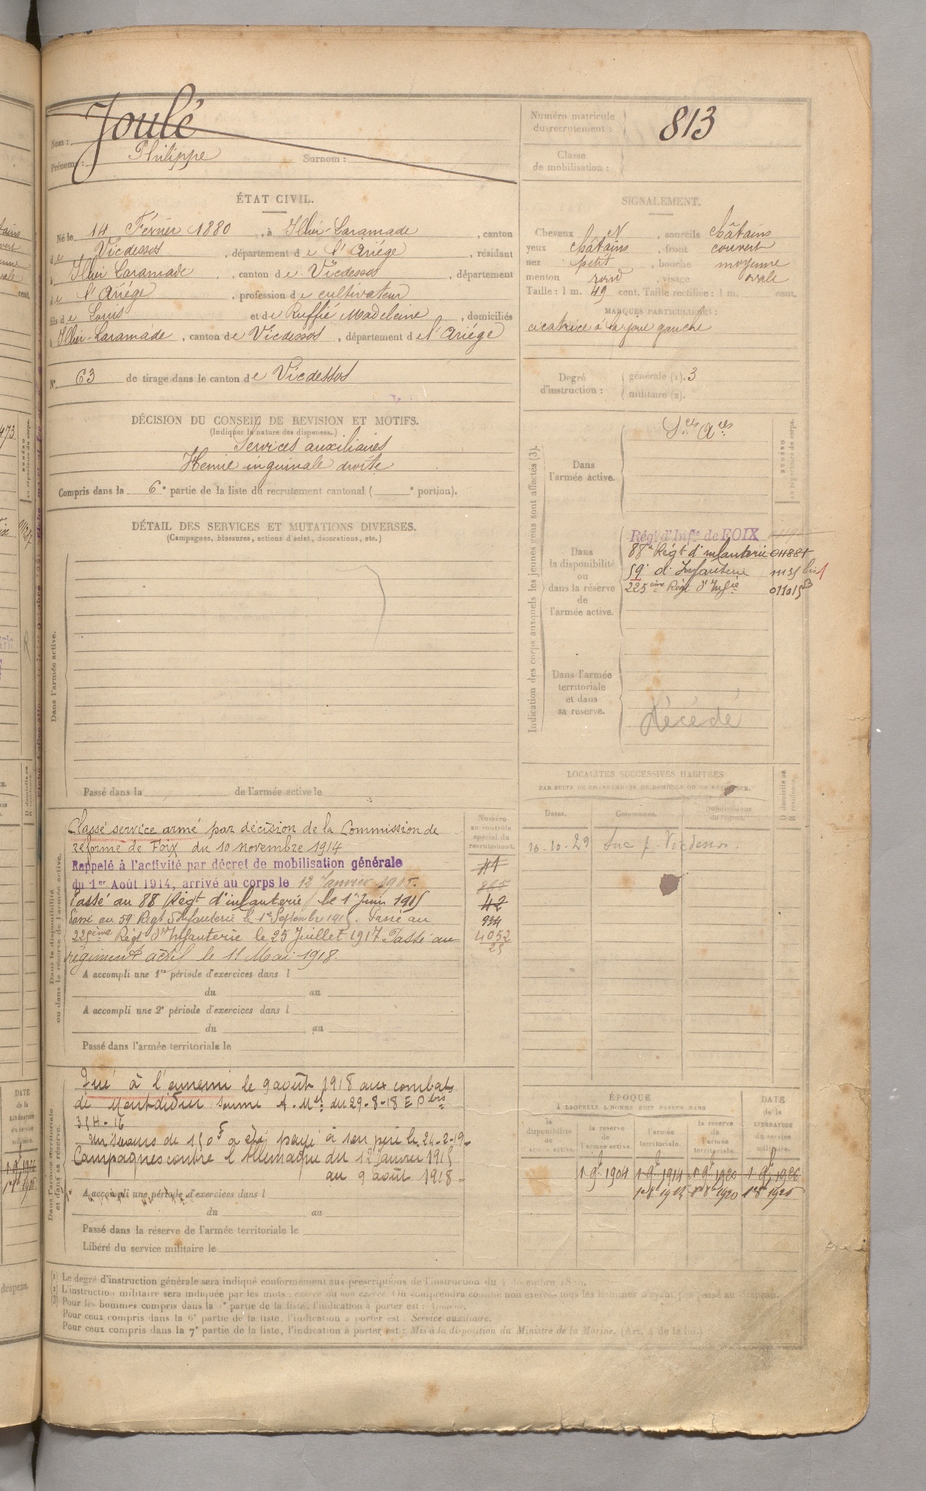 Nom : Joulé
Prénoms : Philippe Surnom :
Numéro matricule du recrutement : 813
Classe de mobilisation :
ÉTAT CIVIL.
Né le 14 Février 1880, à Illier-Laramade, canton
de Vicdessos, département de l'Ariége, résidant
à Illier Laramade, canton de Vicdessos, département
de l'Ariége, profession de cultivateur
fils de Louis et de Ruffié Madeleine, domiciliés
à Illier-Laramade, canton de Vicdessos, département de l'Ariége
N° 63 de tirage dans le canton de Vicdessos
SIGNALEMENT.
Cheveux N, sourcils châtains
yeux châtains, front couvert
nez petit, bouche moyenne
menton rond, visage ovale
Taille : 1 m. 49 cent. Taille rectifiée : 1 m. cent.
MARQUES PARTICULIÈRES :
cicatrice à la joue gauche
Degré d'instruction : générale (1). 3
militaire (2).
DÉCISION DU CONSEIL DE REVISION ET MOTIFS.
(Indiquer la nature des dispenses.)
Services auxiliaires
Hernie inguinale droite
Compris dans la 6e partie de la liste du recrutement cantonal ( e portion).
DÉTAIL DES SERVICES ET MUTATIONS DIVERSES.
(Campagnes, blessures, actions d'éclat, décorations, etc.)
Dans l'armée active.
Passé dans la de l'armée active le
Indication des corps auxquels les jeunes gens sont affectés (3).
Dans l'armée active.
Sces Ares
Dans la disponibilité ou dans la réserve de l'armée active.
Régt d'Infie de FOIX
88e Régt d'infanterie
59e d'Infanterie
225ème Régt d'Infie
Dans l'armée territoriale et dans sa réserve.
décédé
Classé service armé par décision de la Commission de
réforme de Foix du 10 novembre 1914
Rappelé à l'activité par décret de mobilisation générale
du 1er Août 1914, arrivé au corps le 12 Janvier 1915.
Passé au 88 Régt d'infanterie le 1er Juin 1915
Passé au 59 Régt d'Infanterie le 1er Septembre 1915. Passé au
225ème Régt d'Infanterie le 25 Juillet 1917 Passé au
régiment actif le 11 Mai 1918
Numéro au contrôle spécial du recrutement.
42
934
4052
A accompli une 1re période d'exercices dans l
du au
A accompli une 2e période d'exercices dans l
du au
Passé dans l'armée territoriale le
Tué à l'ennemi le 9 août 1918 aux combats
de Montdidier Somme A. Mel du 29-8-18
Un secours de 150f a été payé à son père le 24-2-19
Campagnes contre l'Allemagne du 12 Janvier 1915
au 9 août 1918
A accompli une période d'exercices dans l
du au
Passé dans la réserve de l'armée territoriale le
Libéré du service militaire le
LOCALITÉS SUCCESSIVES HABITÉES
PAR SUITE DE CHANGEMENTS DE DOMICILE OU DE RÉSIDENCE.
Dates. Communes. Subdivisions de région.
16-10-29 Suc p. Vicdessos.
ÉPOQUE
À LAQUELLE L'HOMME DOIT PASSER DANS
la disponibilité de l'armée active.
la réserve de l'armée active.
l'armée territoriale.
la réserve de l'armée territoriale.
DATE de la LIBÉRATION du service militaire.
1904 1914 1920 1926
(1) Le degré d'instruction générale sera indiqué conformément aux prescriptions de l'instruction du
Pour ceux compris dans la 6e partie de la liste, l'indication à porter est : Service auxiliaire.
Pour ceux compris dans la 7e partie de la liste, l'indication à porter est : Mis à la disposition du Ministre de la Marine.